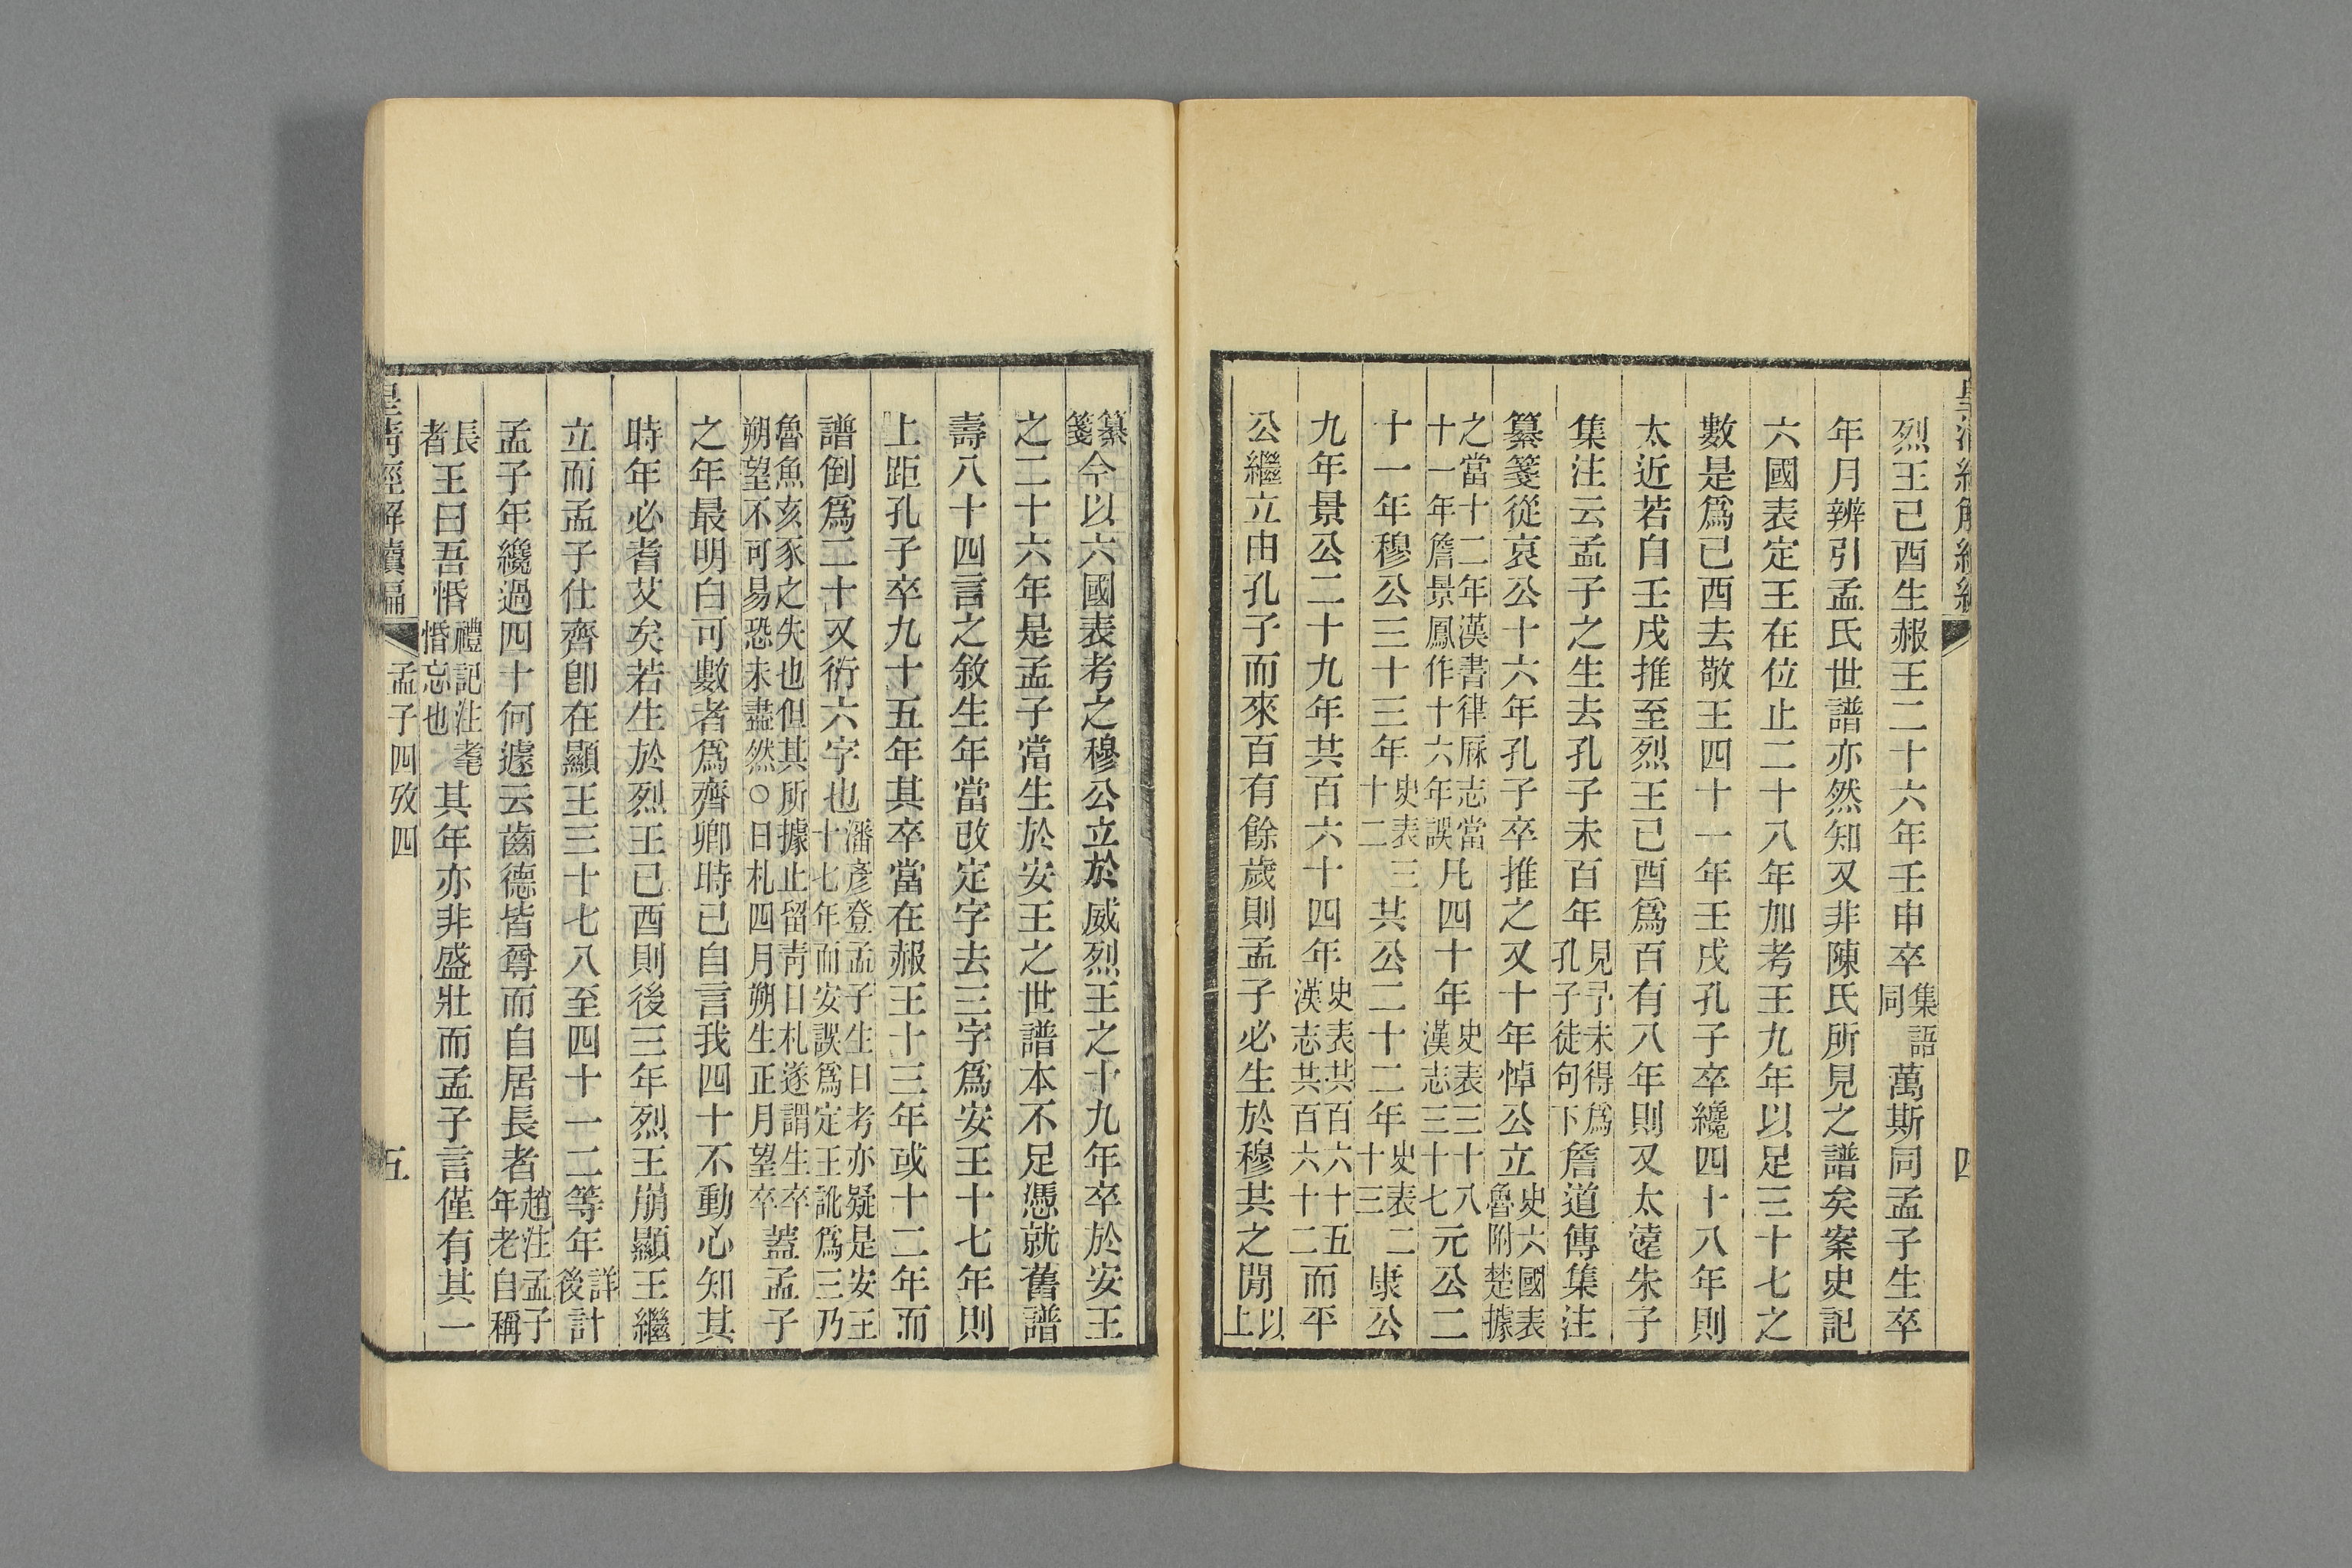 烈王己酉生赧王二十六年壬申卒集語同萬斯同孟子生卒
年月辨引孟氏世譜亦然知又非陳氏所見之譜矣案史記
六國表定王在位止二十八年加考王九年以足三十七之
數是爲己酉去敬王四十一年壬戌孔子卒纔四十八年則
太近若自壬戌推至烈王己酉爲百有八年則又太遠朱子
集注云孟子之生去孔子未百年見予未得爲孔子徒句下詹道傳集注
纂箋從哀公十六年孔子卒推之又十年悼公立史六國表魯附楚據
之當十二年漢書律厤志當十一年詹景鳳作十六年誤凡四十年史表三十八漢志三十七元公二
十一年穆公三十三年史表三十二共公二十二年史表二十三康公
九年景公二十九年共百六十四年史表共百六十五漢志共百六十二而平
公繼立由孔子而來百有餘歲則孟子必生於穆共之閒以上
纂箋今以六國表考之穆公立於威烈王之十九年卒於安王
之二十六年是孟子當生於安王之世譜本不足憑就舊譜
壽八十四言之敘生年當改定字去三字爲安王十七年則
上距孔子卒九十五年其卒當在赧王十三年或十二年而
譜倒爲二十又衍六字也潘彥登孟子生日考亦疑是安王十七年而安誤爲定王訛爲三乃
魯魚亥豕之失也但其所據止留青日札遂謂生卒朔望不可易恐未盡然○日札四月朔生正月望卒蓋孟子
之年最明白可數者爲齊卿時己自言我四十不動心知其
時年必耆艾矣若生於烈王己酉則後三年烈王崩顯王繼
立而孟子仕齊卽在顯王三十七八至四十一二等年詳後計
孟子年纔過四十何遽云齒德皆尊而自居長者趙注孟子年老自稱
長者王曰吾惛禮記注耄惛忘也其年亦非盛壯而孟子言僅有其一
皇清經解續編
孟子四攷四
五